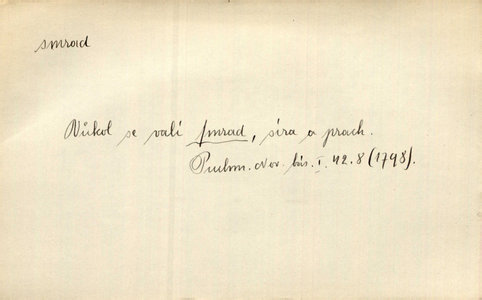 smrad
Vůkol se valí smrad, síra a prach.
Puchm. Nov. bás. I. 42. 8 (1798).